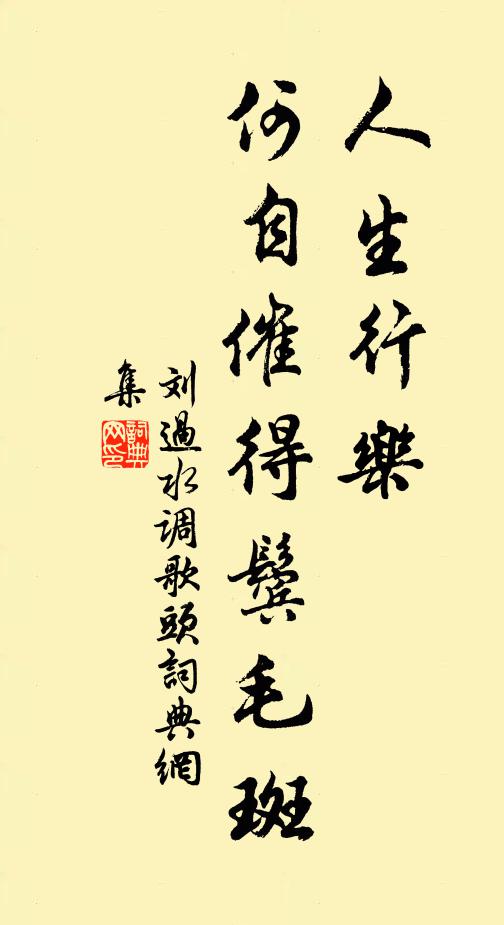 人生行樂
何自催得鬓毛斑
刘過水调歌頭詞典網
集
詞典
网印